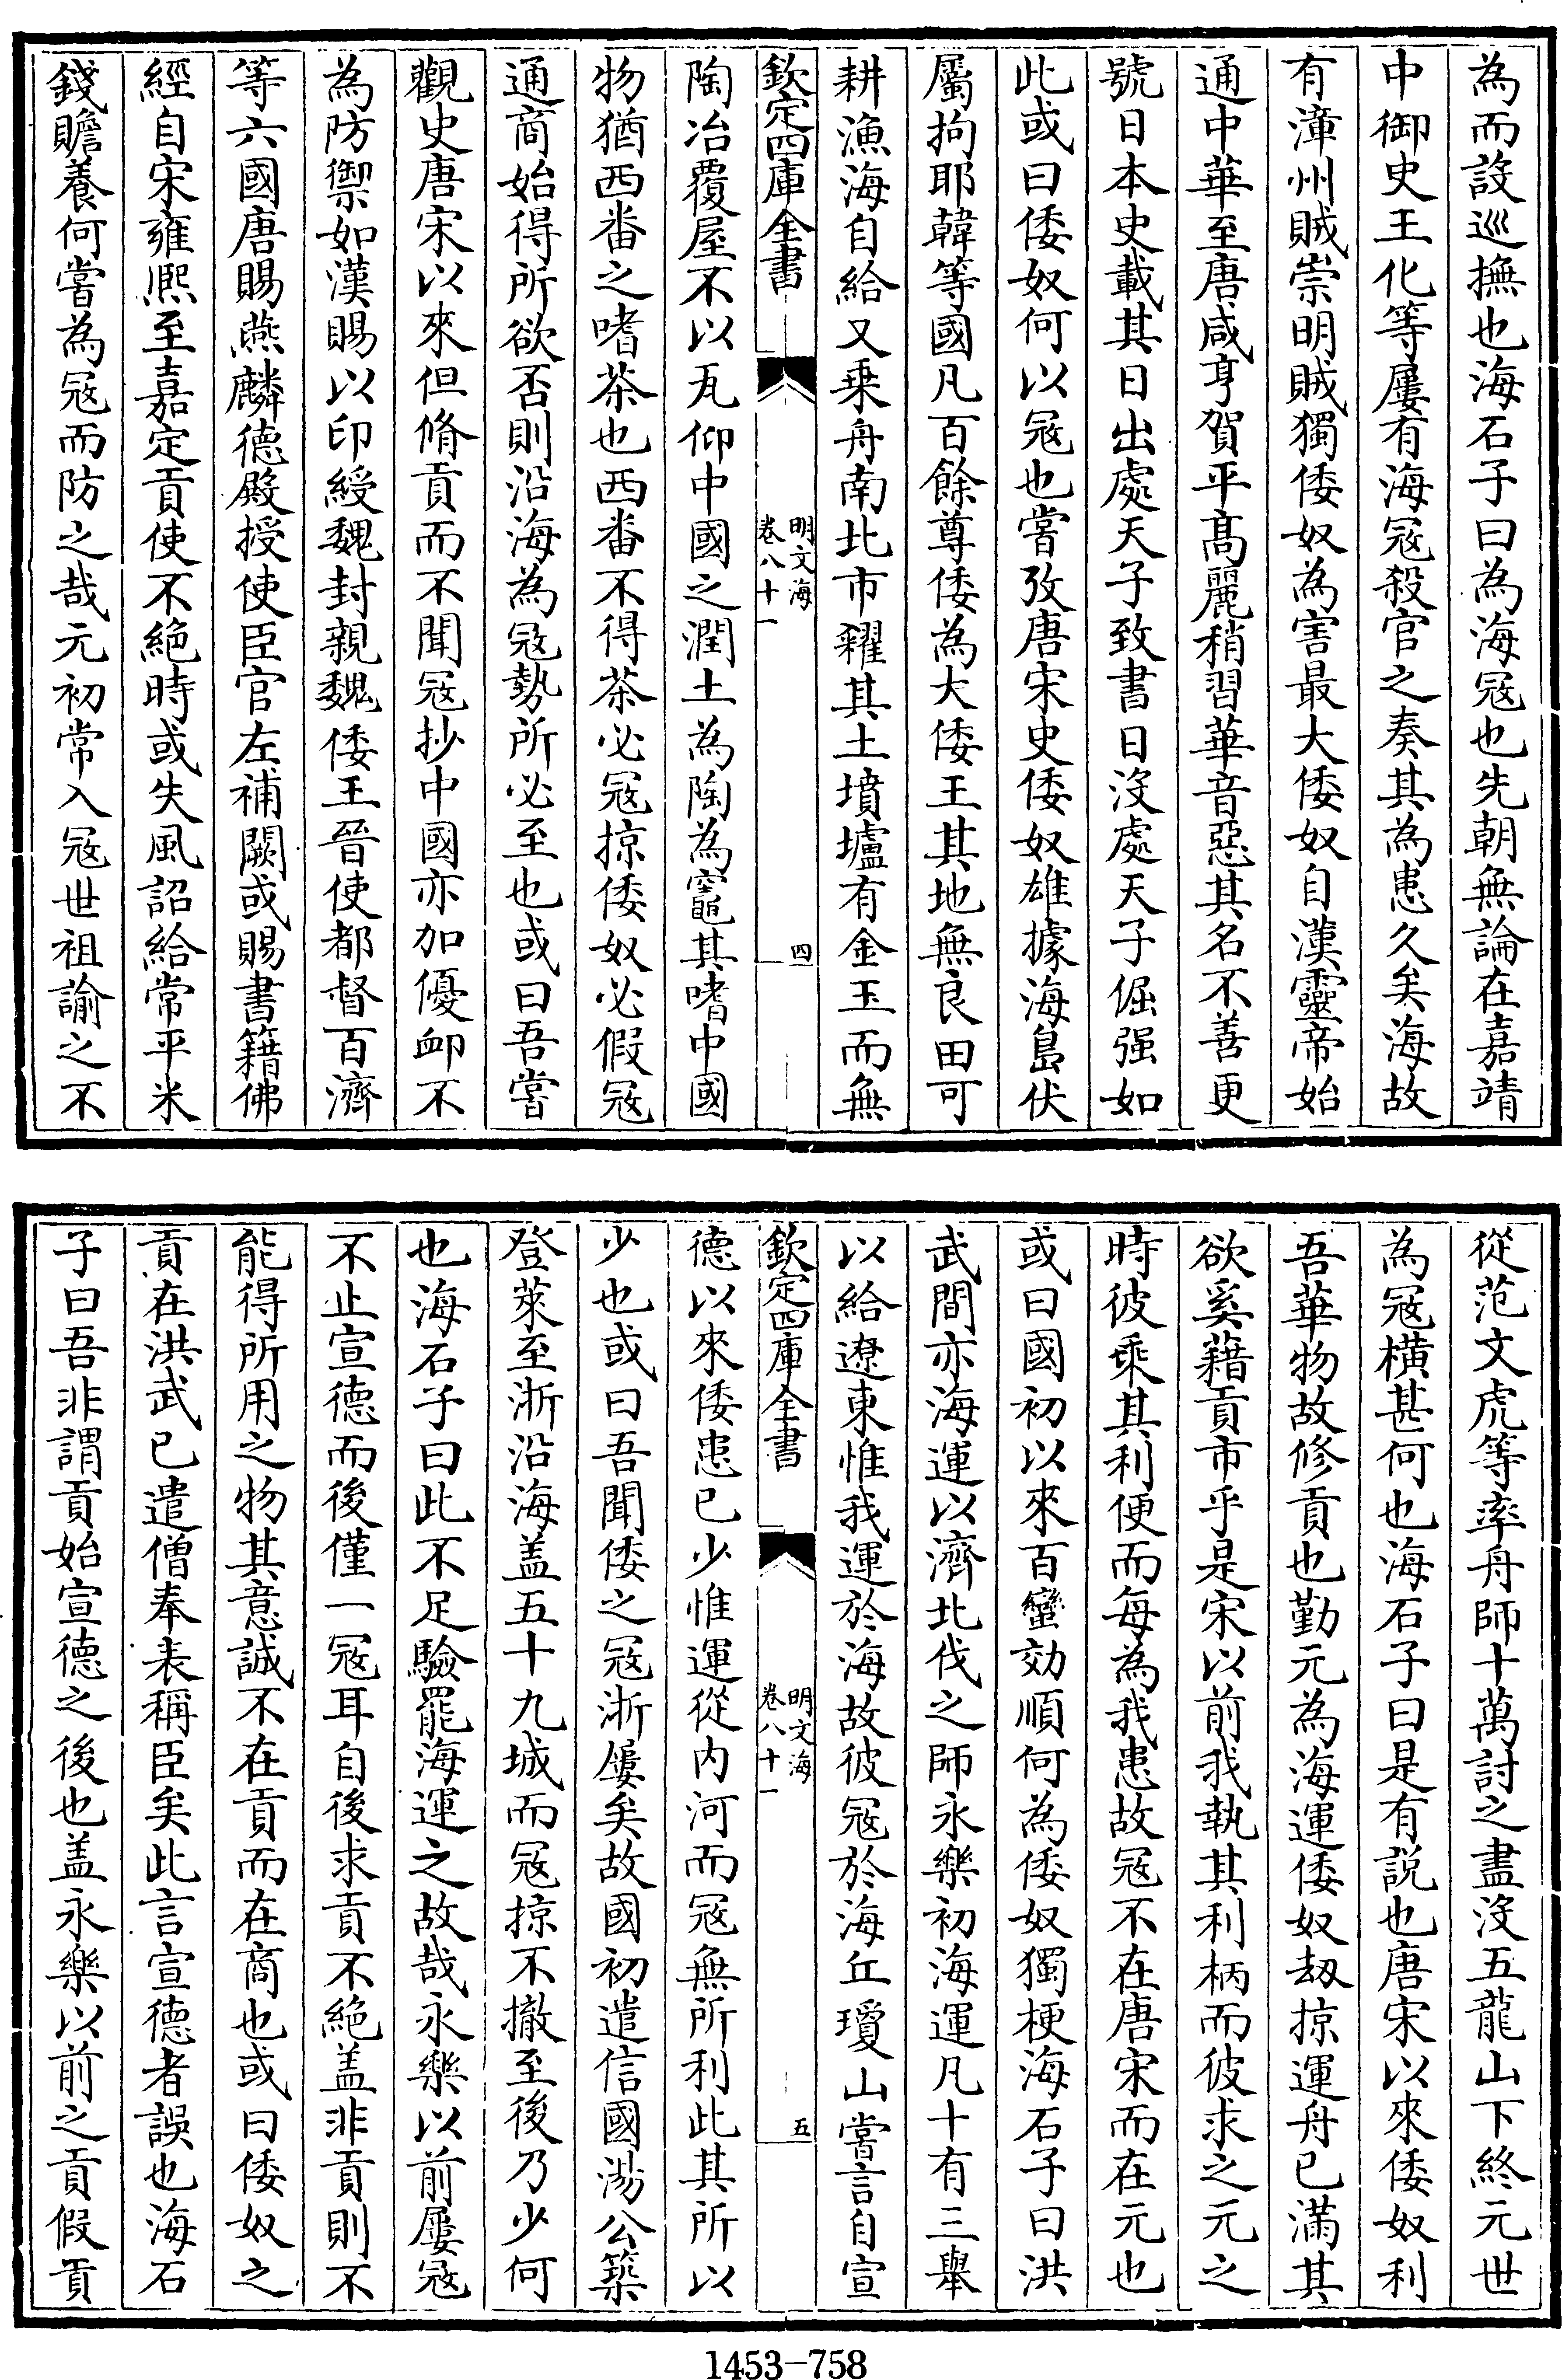 為而設巡撫也海石子曰為海冦也先朝無論在嘉靖
中御史王化等屢有海冦殺官之奏其為患久矣海故
有漳州賊崇明賊獨倭奴為害最大倭奴自漢靈帝始
通中華至唐咸亨賀平髙麗稍習華音惡其名不善更
號日本史載其日出處天子致書日沒處天子倔强如
此或曰倭奴何以冦也嘗攷唐宋史倭奴雄據海島伏
屬拘耶韓等國凡百餘尊倭為大倭王其地無良田可
耕漁海自給又乗舟南北市糴其土墳壚有金玉而無
欽定四庫全書
明文海
卷八十一
四
陶冶覆屋不以瓦仰中國之潤土為陶為竈其嗜中國
物猶西畨之嗜茶也西畨不得茶必冦掠倭奴必假冦
通商始得所欲否則沿海為冦勢所必至也或曰吾嘗
觀史唐宋以來但脩貢而不聞冦抄中國亦加優卹不
為防禦如漢賜以印綬魏封親魏倭王晉使都督百濟
等六國唐賜燕麟德殿授使臣官左補闕或賜書籍佛
經自宋雍熈至嘉定貢使不絶時或失風詔給常平米
錢贍養何嘗為冦而防之哉元初常入冦世祖諭之不
從范文虎等率舟師十萬討之盡沒五龍山下終元世
為冦橫甚何也海石子曰是有説也唐宋以來倭奴利
吾華物故修貢也勤元為海運倭奴刼掠運舟已滿其
欲奚藉貢市乎是宋以前我執其利柄而彼求之元之
時彼乘其利便而每為我患故冦不在唐宋而在元也
或曰國初以來百蠻効順何為倭奴獨梗海石子曰洪
武間亦海運以濟北伐之師永樂初海運凡十有三舉
以給遼東惟我運於海故彼冦於海丘瓊山嘗言自宣
欽定四庫全書
明文海
卷八十一
五
德以來倭患已少惟運從内河而冦無所利此其所以
少也或曰吾聞倭之冦浙屢矣故國初遣信國湯公築
登萊至浙沿海盖五十九城而冦掠不撤至後乃少何
也海石子曰此不足驗罷海運之故哉永樂以前屢冦
不止宣德而後僅一冦耳自後求貢不絶盖非貢則不
能得所用之物其意誠不在貢而在商也或曰倭奴之
貢在洪武已遣僧奉表稱臣矣此言宣德者誤也海石
子曰吾非謂貢始宣德之後也盖永樂以前之貢假貢
1453-758